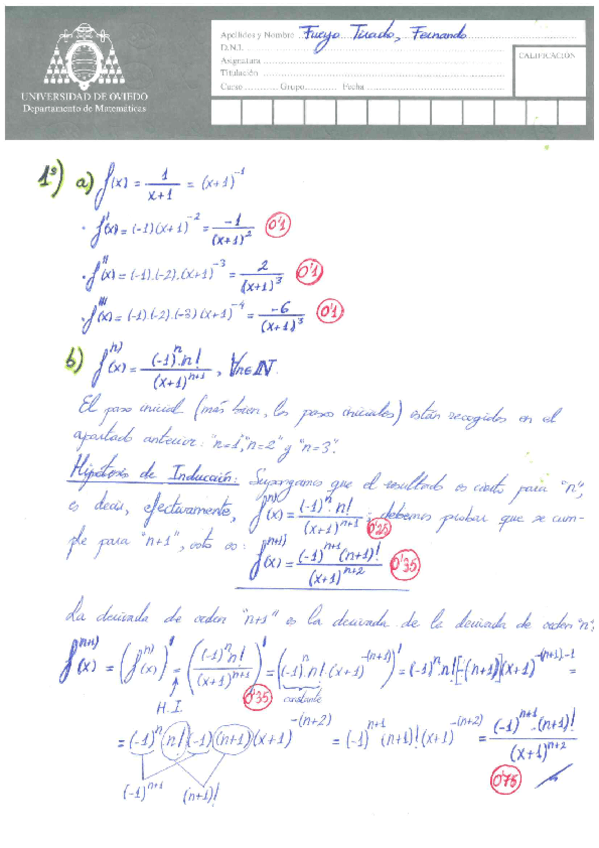 UNIVERSIDAD DE OVIEDO
Departamento de Matemáticas
Apellidos y Nombre Fueyo Tirado, Fernando
D.N.I.
Asignatura
Titulación
Curso Grupo Fecha
CALIFICACIÓN
1º) a) f(x) = 1/(x+1) = (x+1)^-1
· f'(x) = (-1)(x+1)^-2 = -1/(x+1)^2 0'1
· f''(x) = (-1)·(-2)·(x+1)^-3 = 2/(x+1)^3 0'1
· f'''(x) = (-1)·(-2)·(-3)(x+1)^-4 = -6/(x+1)^3 0'1
b) f^n)(x) = (-1)^n·n!/(x+1)^n+1, ∀n∈ℕ.
El paso inicial (más bien, los pasos iniciales) están recogidos en el
apartado anterior: "n=1", "n=2" y "n=3".
Hipótesis de Inducción: Supongamos que el resultado es cierto para "n",
es decir, efectivamente, f^n)(x) = (-1)^n·n!/(x+1)^n+1 0'25; debemos probar que se cum-
ple para "n+1", esto es: f^n+1)(x) = (-1)^n+1(n+1)!/(x+1)^n+2 0'35
La derivada de orden "n+1" es la derivada de la derivada de orden "n";
f^n+1)(x) = (f^n)(x))' = ((-1)^n n!/(x+1)^n+1)' = ((-1)^n·n!·(x+1)^-(n+1))' = (-1)^n·n!·[-(n+1)](x+1)^-(n+1)-1 =
H.I. 0'35 constante
= (-1)^n n! (-1)(n+1)(x+1)^-(n+2) = (-1)^n+1·(n+1)!(x+1)^-(n+2) = (-1)^n+1·(n+1)!/(x+1)^n+2
(-1)^n+1 (n+1)! 0'75